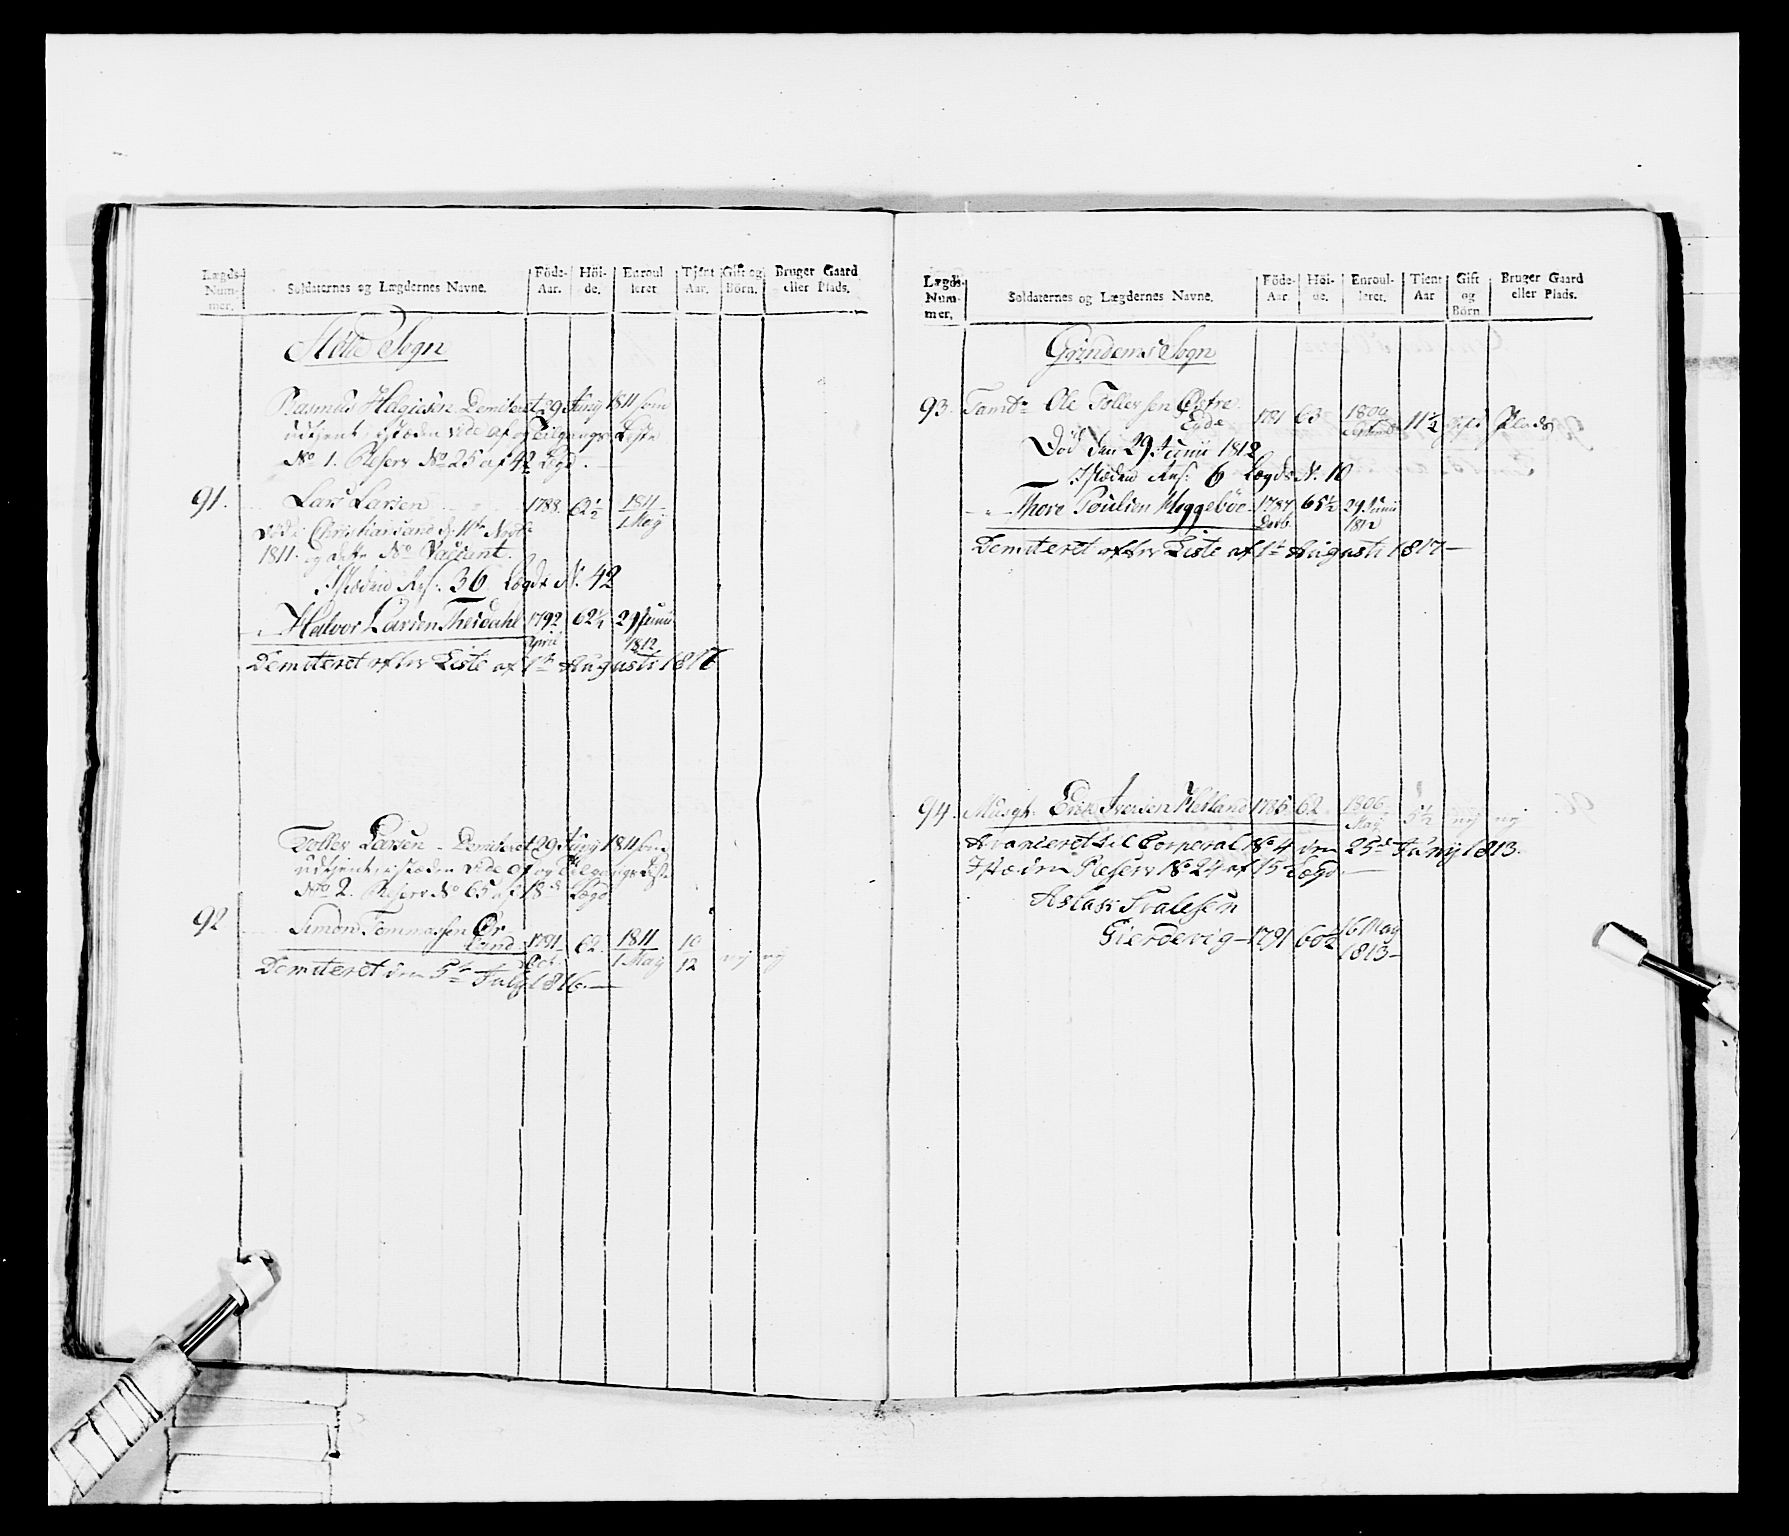 Lægds-
Num-
mer.
Soldaternes og Lægdernes Navne.
Föde-
Aar.
Höi-
de.
Enroul
leret
Tjent
Aar.
Gift og
Börn.
Bruger Gaard
eller Plads.
Sogn
Rasmus Helgiesen Demiteret 29 Juny 1811 som
udtjent istæden vide Af og Tilgangs Liste
No 1. Reserv No 25 af 42 Lægd.
91.
Lars Larsen 1788. 62½ 1811
1 May
Död i Christiansand d. 11te
1811. og dette No Vacant.
Istæden Res: 36 Lægds N. 42
Halvor Larsen 1792 62¼ 29 Junii
April 1812
Demiteret efter Liste af 1te Augusti 1817
Tolles Larsen - Demiteret 29 Juny 1811 som
udtjent istæden vide Af og Tilgangs List.
No 2. Reserv No 65 af 18de Lægd
92
Simon Tommesen
1791 62. 1811 10
Oct. 1 May 12 nej nej
Demiteret den 5te July 1816.
Lægds-
Num-
mer.
Soldaternes og Lægdernes Navne.
Föde-
Aar.
Höi-
de.
Enroul-
leret.
Tient
Aar
Gift
og
Börn
Bruger Gaard
eller Plads.
Grindems Sogn
93. Tamb: Ole Tollersen Østre
Eyde 1781 63 1800 11½ gift Plads
Död den 29 Junii 1812
Istæden Res: 6 Lægds N. 10
Thore Poulsen Meggeböe 1787 65½ 29 Junii
1812
Demiteret efter Liste af 1te Augusti 1817
94. Musqt. Erik Iversen 1785 62 1806 5½ nej nej
May
Avanceret til Corporal No 4 den 25de Juny 1813.
Istæden Reserv No 24 af 15de Lægd.
Aslak Tralesen
Gierdevig 1791 60½ 16 May
1813